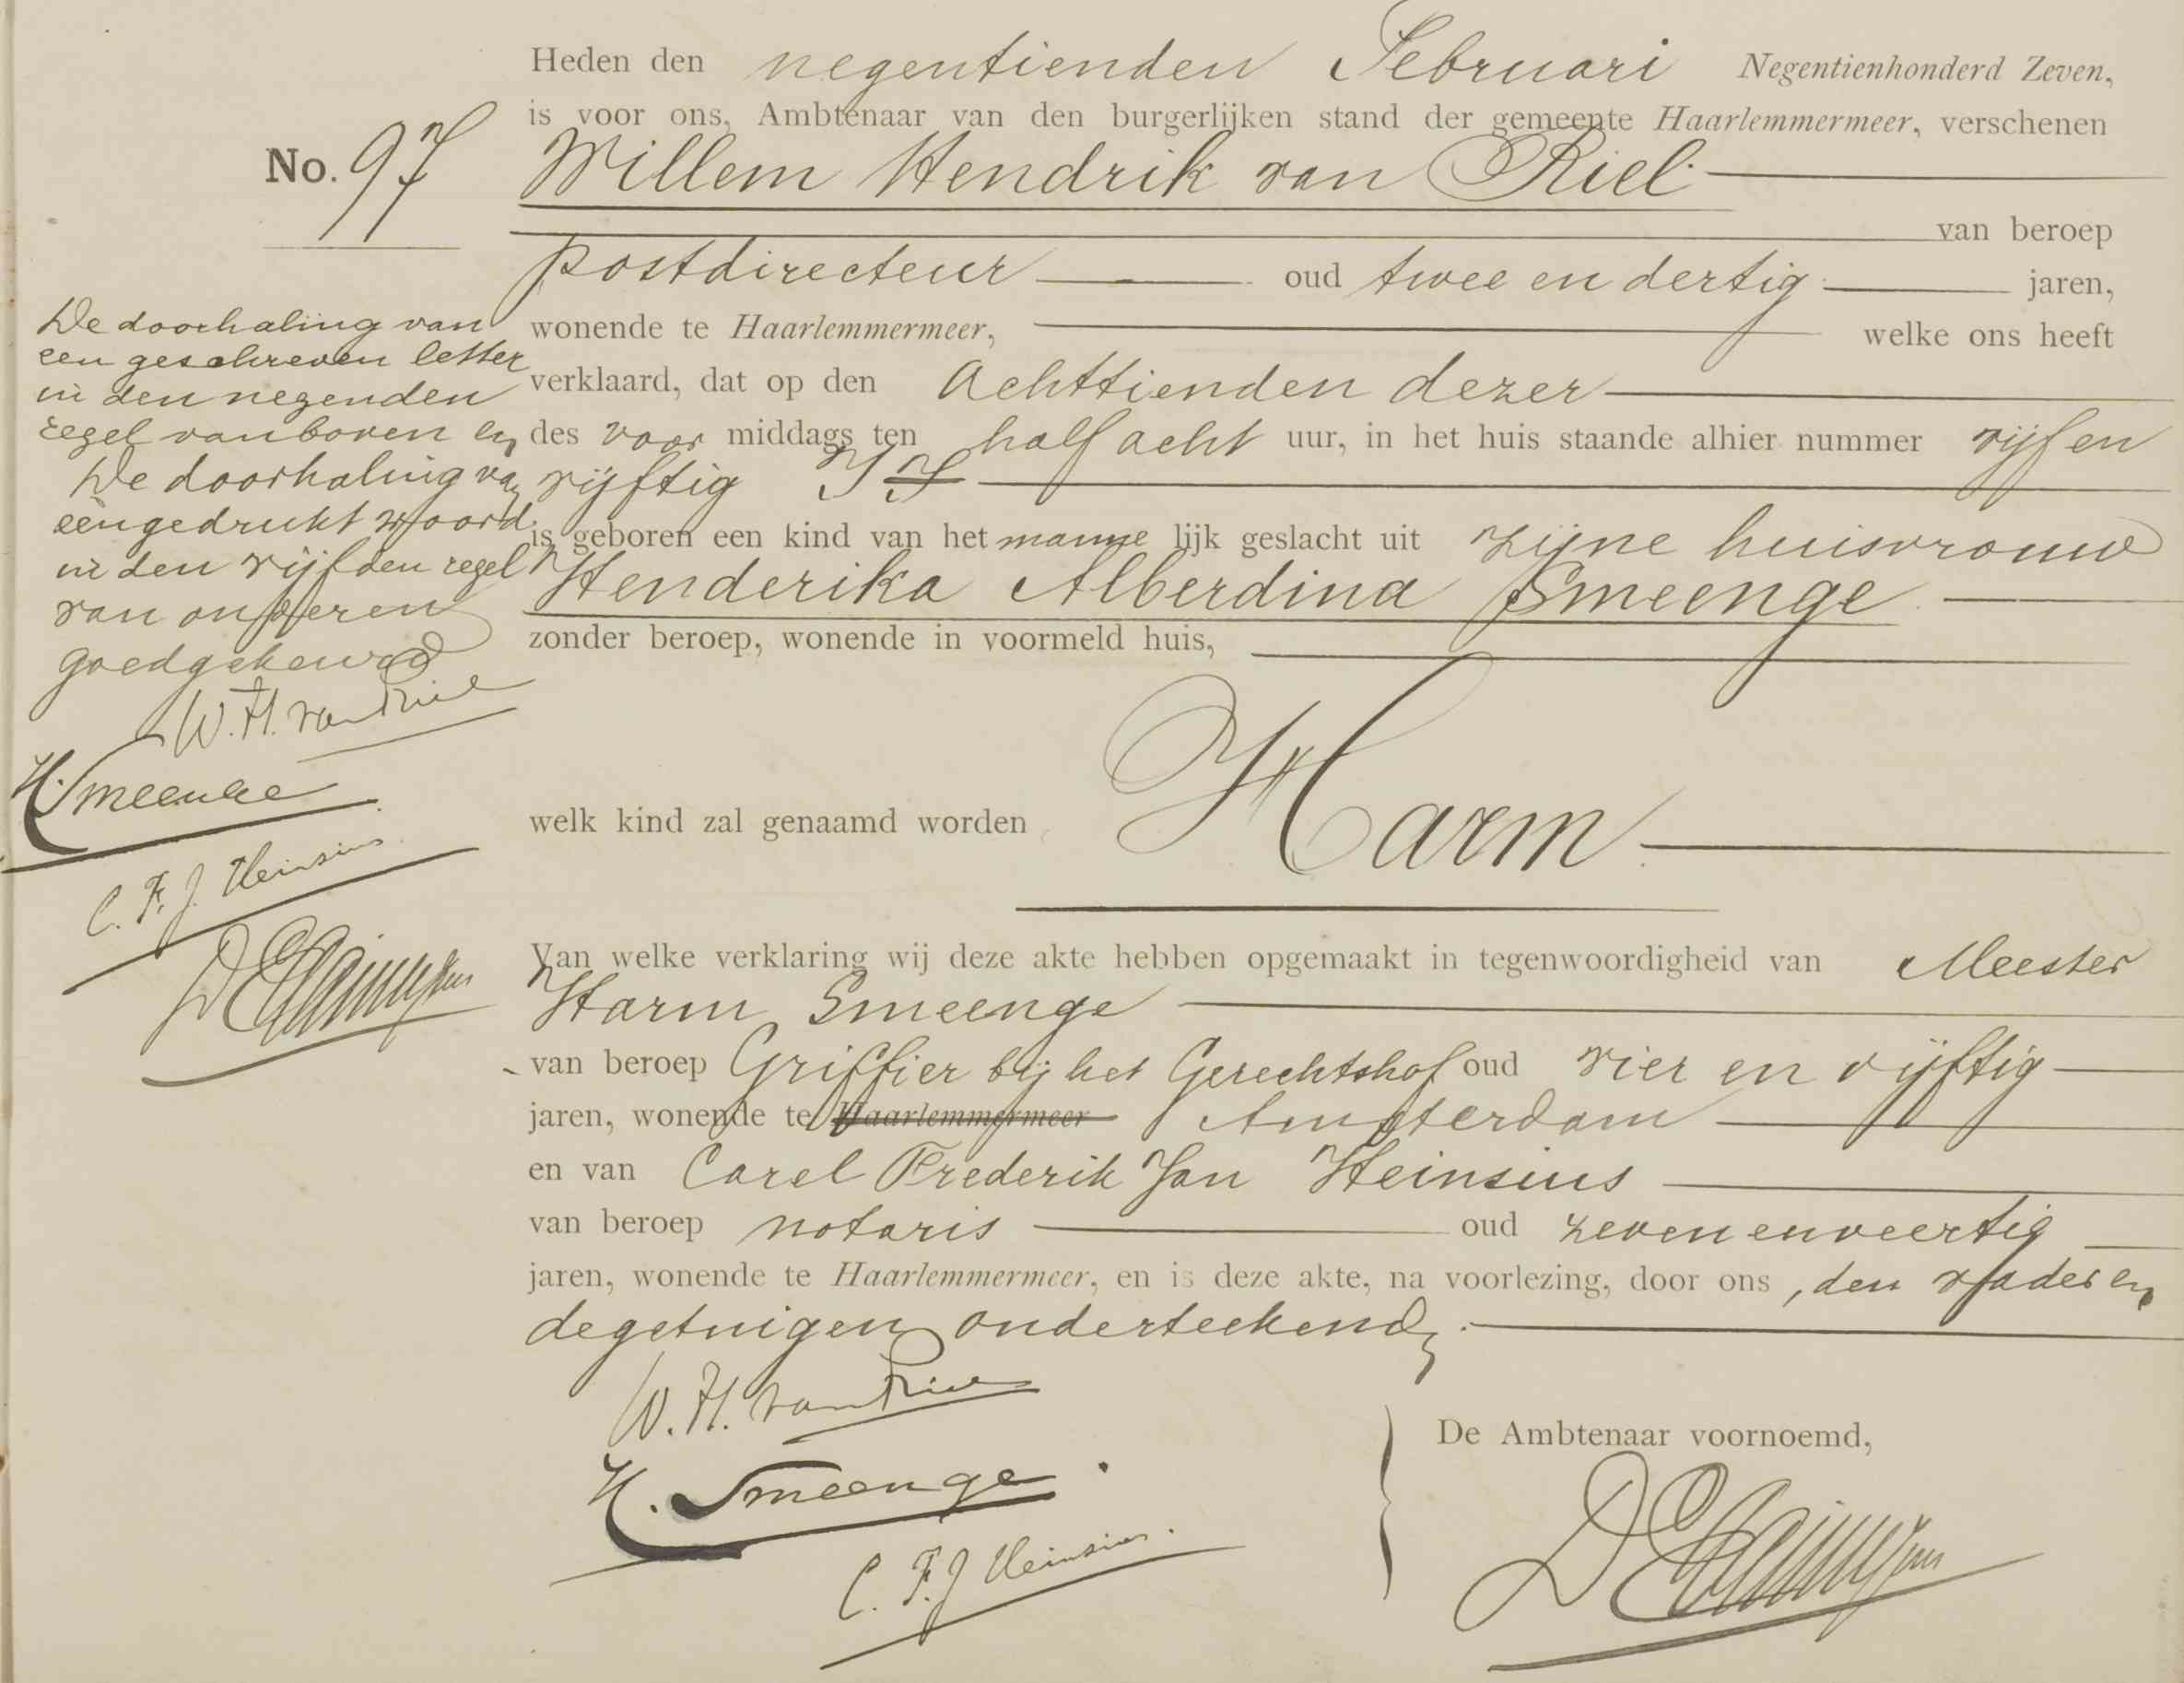 Heden den negentienden Februari Negentienhonderd Zeven,
is voor ons, Ambtenaar van den burgerlijken stand der gemeente Haarlemmermeer, verschenen
No. 97
Willem Hendrik van Riel
van beroep
postdirecteur oud twee en dertig jaren,
wonende te Haarlemmermeer, welke ons heeft
verklaard, dat op den Achttienden dezer
des voor middags ten half acht uur, in het huis staande alhier nummer vijf en
vijftig
is geboren een kind van het manne lijk geslacht uit zijne huisvrouw
Henderika Alberdina Smeenge
zonder beroep, wonende in voormeld huis,
welk kind zal genaamd worden Harm
Van welke verklaring wij deze akte hebben opgemaakt in tegenwoordigheid van Meester
Harm Smeenge
van beroep Griffier bij het Gerechtshof oud vier en vijftig
jaren, wonende te Haarlemmermeer Amsterdam
en van Carel Frederik Jan Heinsius
van beroep notaris oud zeven en veertig
jaren, wonende te Haarlemmermeer, en is deze akte, na voorlezing, door ons, den vader en
de getuigen onderteekend.
De doorhaling van
een geschreven letter
in den negenden
regel van boven en
De doorhaling van
een gedrukt woord
in den vijfden regel
van onderen
goedgekeurd
W. H. van Riel
H. Smeenge
C. F. J. Heinsius
W. H. van Riel
H. Smeenge.
C. F. J Heinsius.
De Ambtenaar voornoemd,